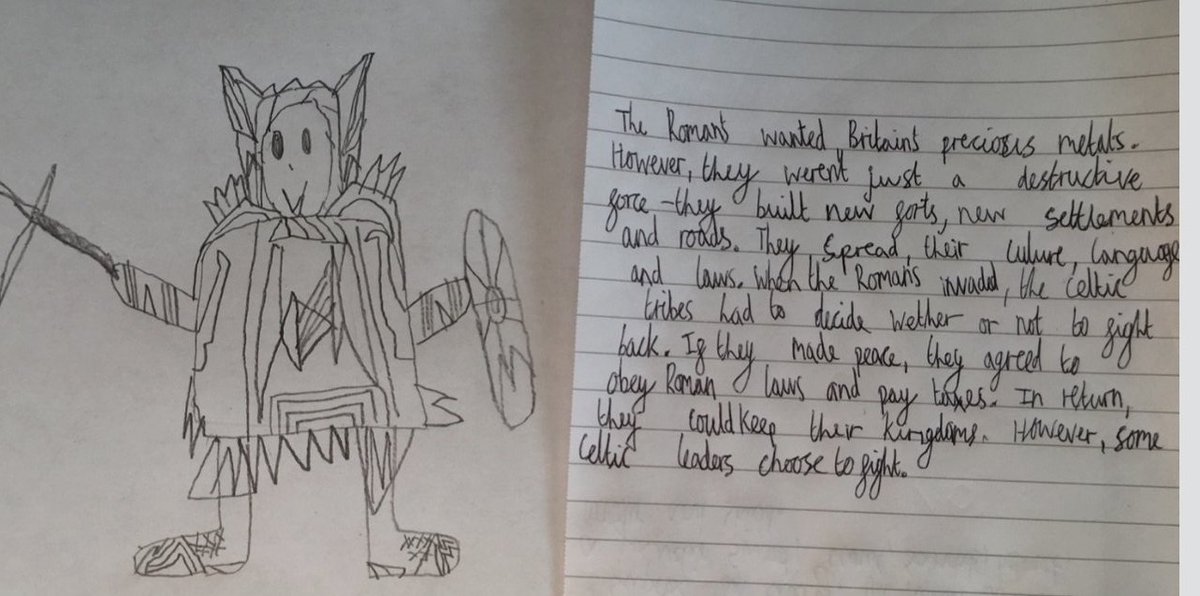 The Roman's wanted Britain's precious metals.
However, they weren't just a destructive
force - they built new forts, new settlements
and roads. They spread their culure, language
and laws. When the Roman's invaded, the Celtic
tribes had to decide wether or not to fight
back. If they made peace, they agreed to
obey Roman laws and pay taxes. In return,
they could keep their kingdoms. However, some
Celtic leaders choose to fight.